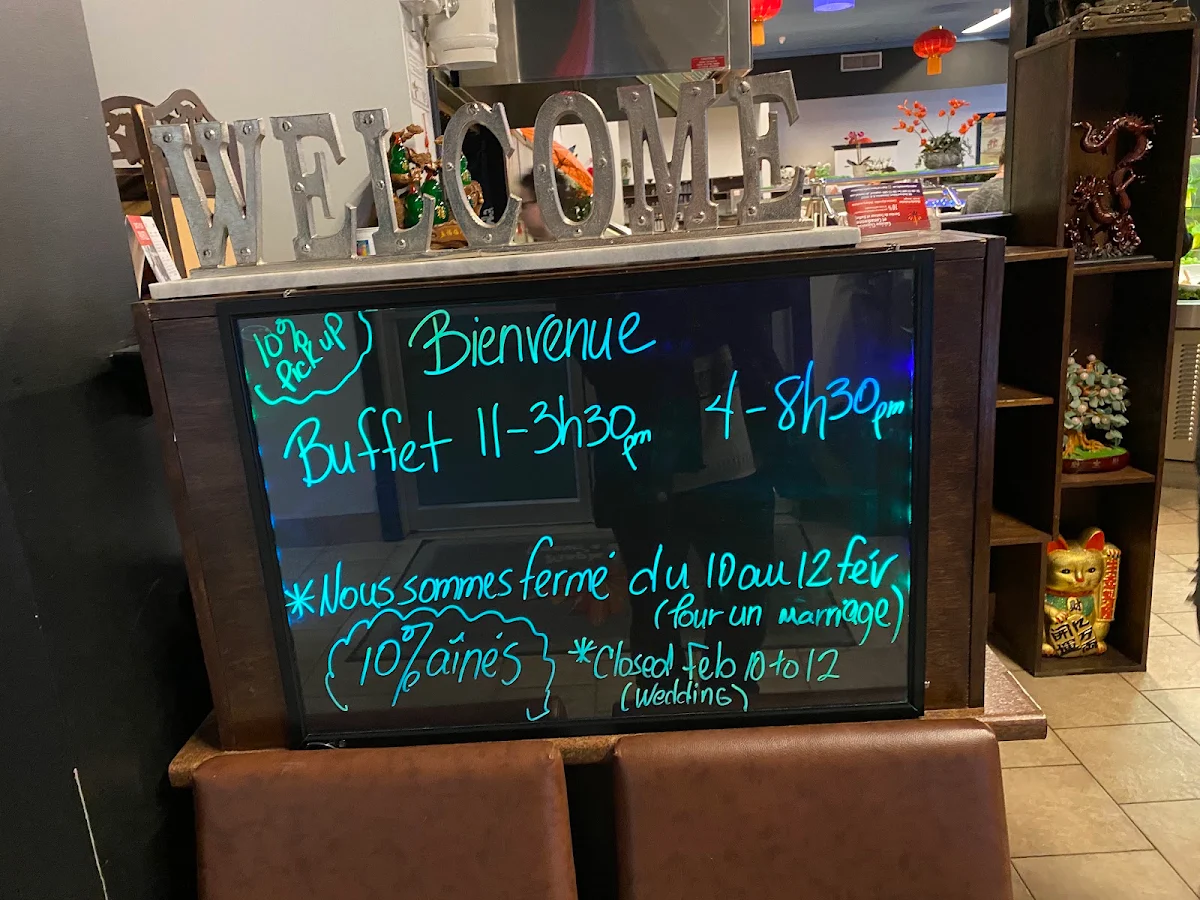 WELCOME
10%
Pick up
Bienvenue
Buffet 11-3h30pm 4-8h30pm
*Nous sommes fermé du 10 au 12 fév
(Pour un marriage)
10% aînés
*Closed Feb 10 to 12
(Wedding)